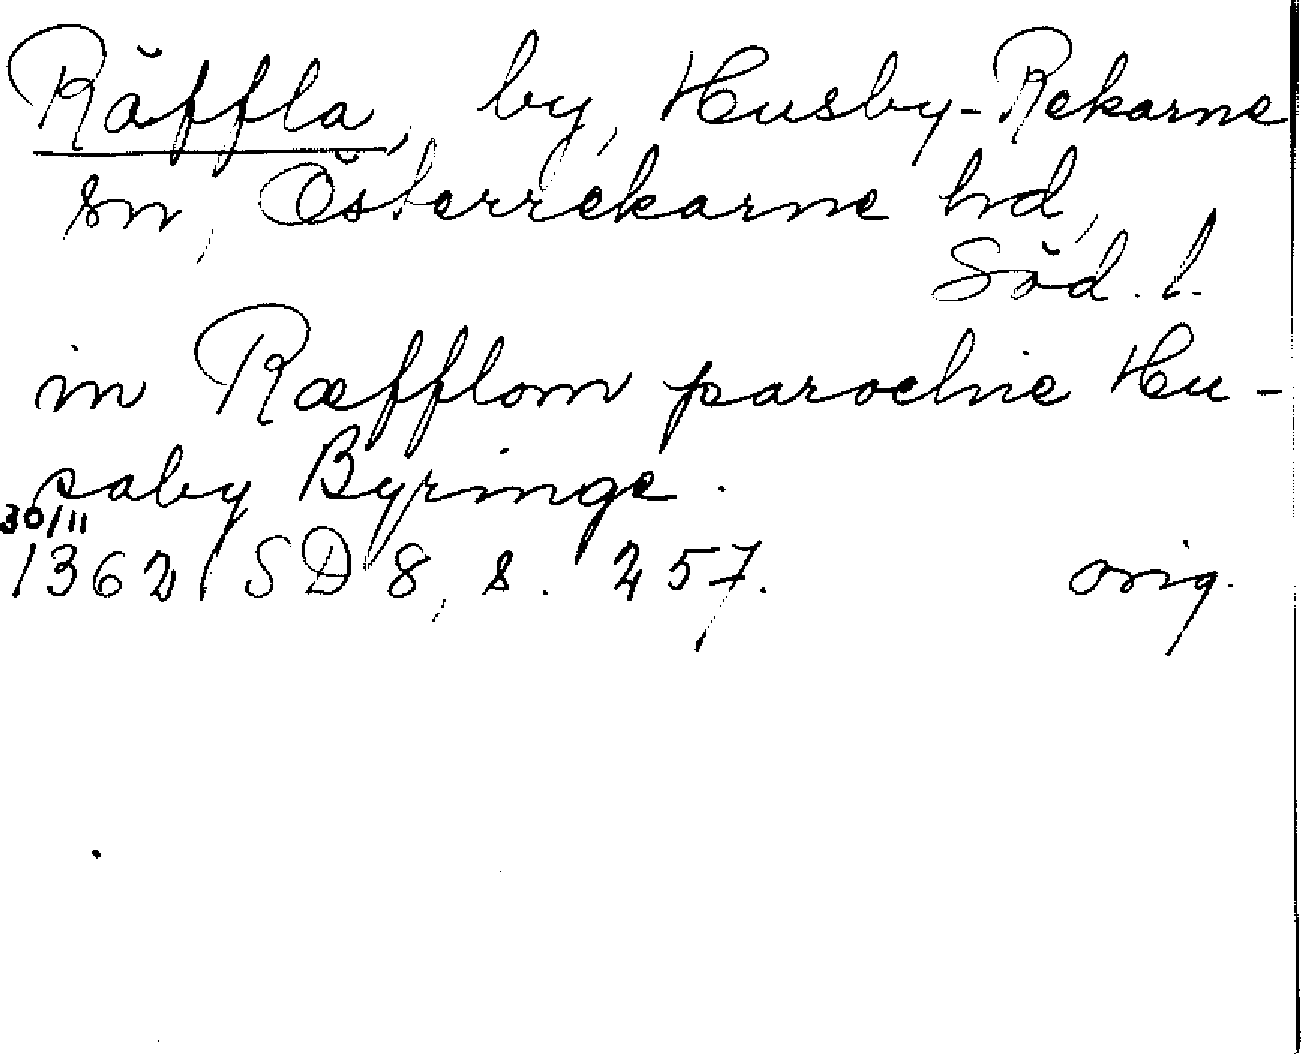 Räffla, by, Husby-Rekarne
sn, Österrekarne hd,
Söd. l.
in Ræfflom parochie Hu-
saby Byringe.
30/11
1362 SD 8, s. 257. orig.